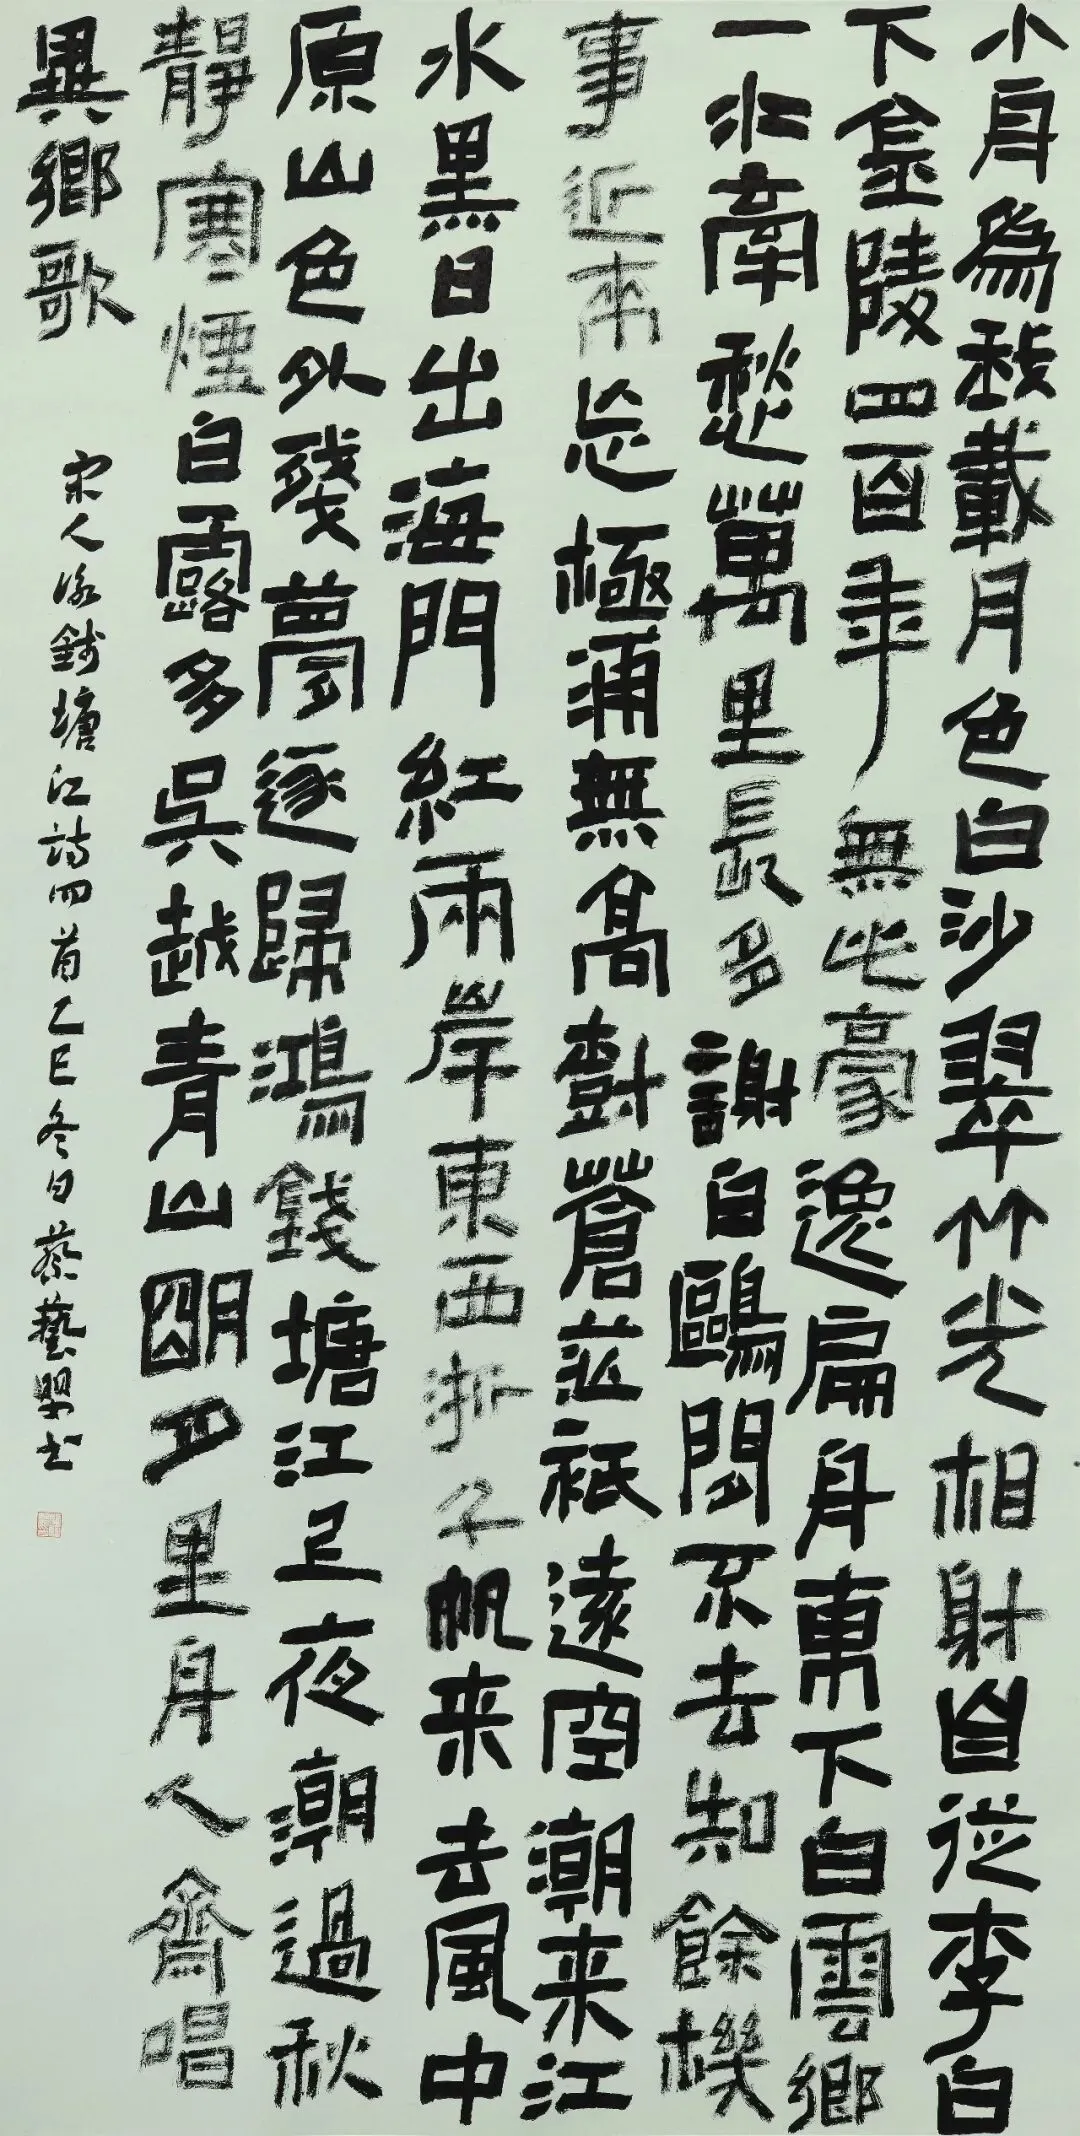 小舟為我載月色白沙翠竹光相射自從李白
下金陵四百年無此豪逸扁舟東下白雲鄉
一水牽愁萬里長多謝白鷗閑不去知餘機
事近来忘極浦無高樹蒼茫祇遠空潮来江
水黑日出海門紅兩岸東西浙千帆来去風中
原山色外殘夢逐歸鴻錢塘江上夜潮過秋
靜寒煙白露多吳越青山明月里舟人齊唱
異鄉歌
宋人詠錢塘江詩四首乙巳冬日蔡藝书